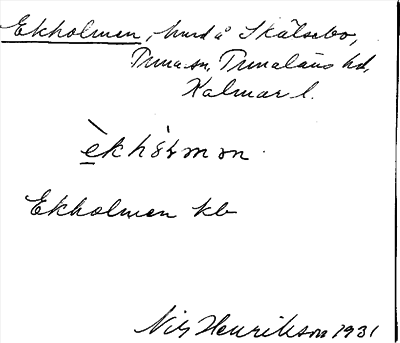 Ekholmen, hmd å Skälsebo,
Tuna sn, Tunaläns hd,
Kalmar l.
èkhòlmən
Ekholmen kb
Nils Henrikson 1931